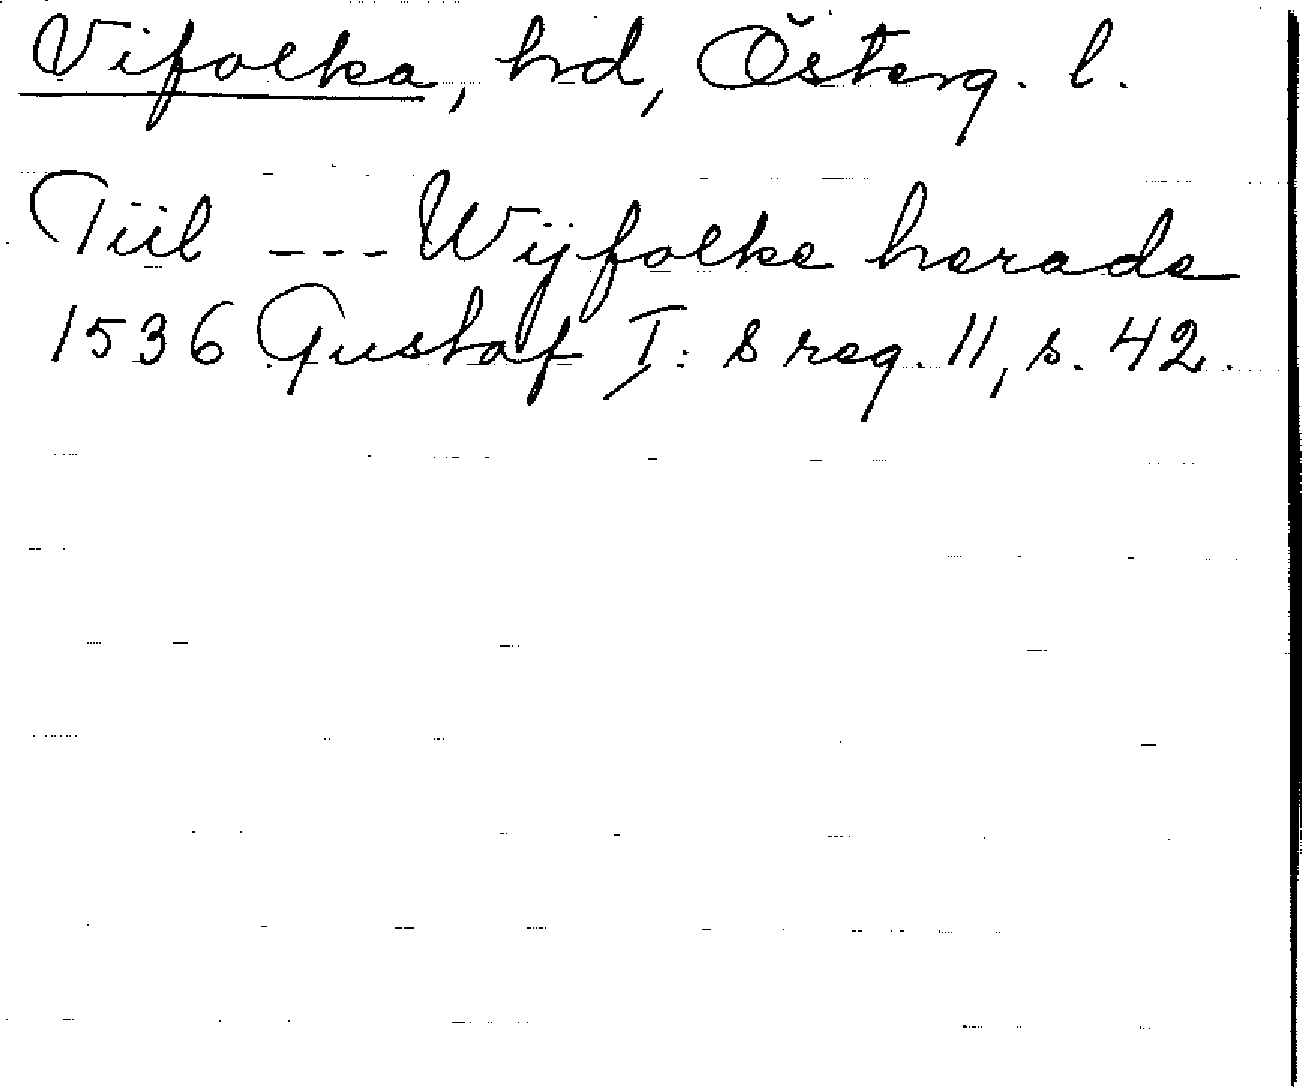 Vifolka, hd, Österg. l.
Tiil --- Wijfolke herade
1536 Gustaf I:s reg. 11, s. 42.